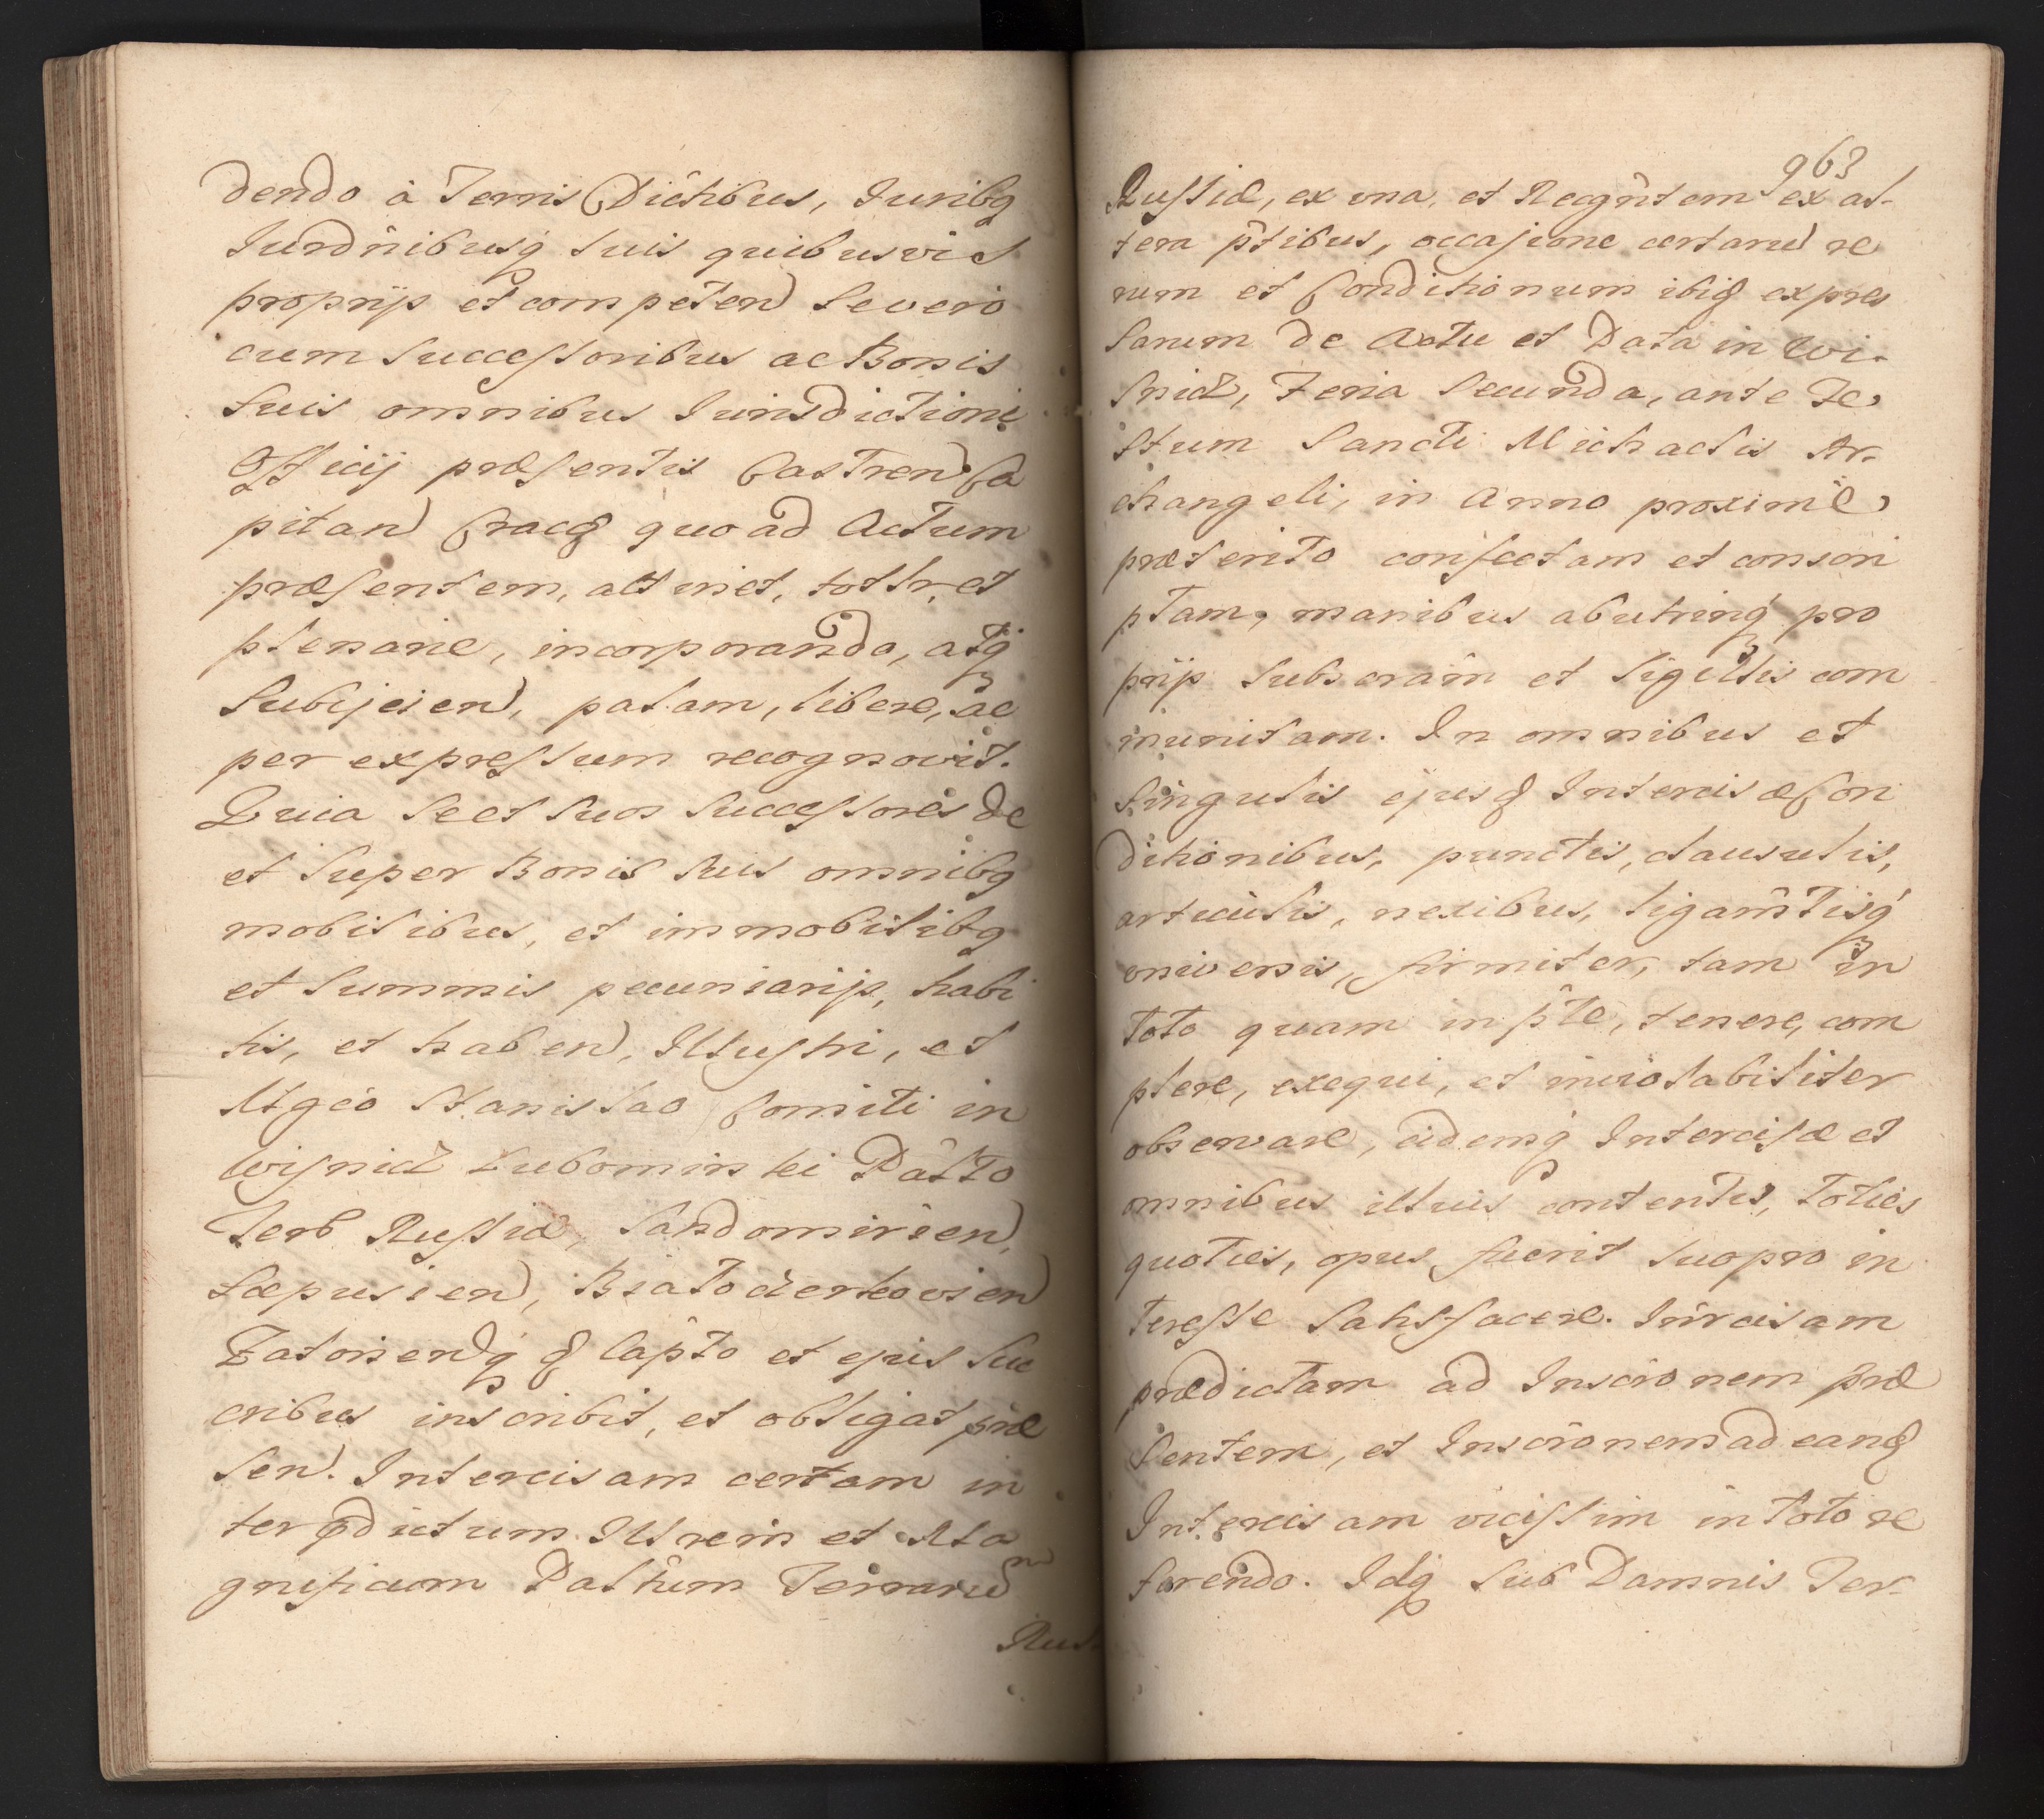 dendo à Terris Dictibus, Juribq
Jurdnibusq suis quibusvis
proprijs et competen) se vero
cum successoribus ac Bonis
suis omnibus Jurisdictioni
Officij præsentis Castren) Ca
pitan) Crac quo ad Actum
præsentem, attinet, totlr, et
plenarie, incorporando, atq
subijcien), palam, libere, ac
per expressum recognovit.
Quia se et suos successores de
et super Bonis suis omnibq
mobilibus, et immobilibq
et summis pecuniarijs, habi
tis, et haben), Illustri, et
Mgco Stanislao Comiti in
Wisnicz Lubomirski Palto
Terr Russiæ, Sandomirien),
Scepusien), Białocerkovien)
Zatorienq Capto et ejus suc
cribus inscribit, et obligat præ
sen). Intercisam certam in
ter pdictum Illrem et Ma
gnificum Paltum Terraru
m
Rus
963
Russiæ, ex una, et Recgntem ex al-
tera ptibus, occasione certaru) re
rum et Conditionum ibiq expres
sarum de Actu et Data in Wi-
snicz, Feria Secunda, ante Fe-
stum Sancti Michaelis Ar-
changeli, in Anno proxime
præterito confectam et conscri
ptam, manibus ab utrinq pro
prijs subscram et sigillis com
munitam. In omnibus et
singulis ejusq Intercisæ Con
ditionibus, punctis, clausulis,
articulis, nexibus, ligamtisq
universis, firmiter, tam in
toto quam in pte, tenere, com
plere, exequi, et inviolabiliter
observare, eidemq Intercisæ et
omnibus illius contentis, toties
quoties, opus fuerit suo pro in
teresse satisfacere. Inrcisam
prædictam ad Inscronem præ
sentem, et Inscronem ad eanq
Intercisam vicissim in toto re
ferendo. Idq sub Damnis Ter-